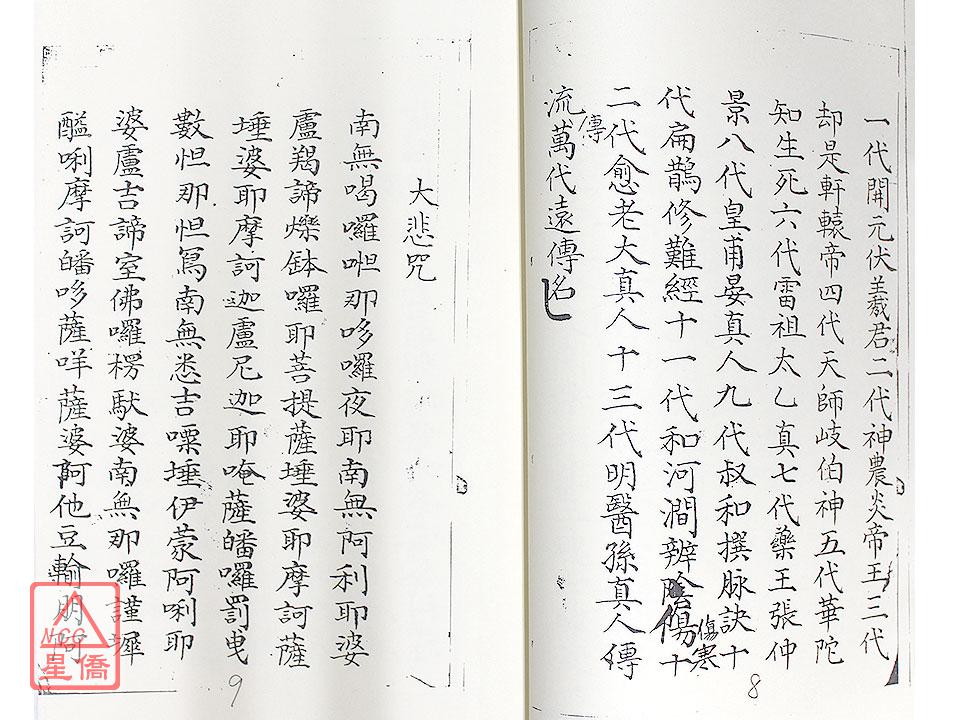 一代開元伏羲君二代神農炎帝王三代
却是軒轅帝四代天師岐伯神五代華陀
知生死六代雷祖太乙真七代藥王張仲
景八代皇甫晏真人九代叔和撰脉訣十
代扁鵲修難經十一代和河澗辨陰傷十
傷寒
二代愈老大真人十三代明醫孫真人傳
傳
流萬代遠傳名
8
大悲咒
南無喝囉呾那哆囉夜耶南無阿利耶婆
盧羯諦爍鉢囉耶菩提薩埵婆耶摩訶薩
埵婆耶摩訶迦盧尼迦耶唵薩皤囉罰曳
數怛那怛寫南無悉吉嘌埵伊蒙阿唎耶
婆盧吉諦室佛囉楞馱婆南無那囉謹墀
醯唎摩訶皤哆薩咩薩婆阿他豆輸朋阿
9
NCC
星僑